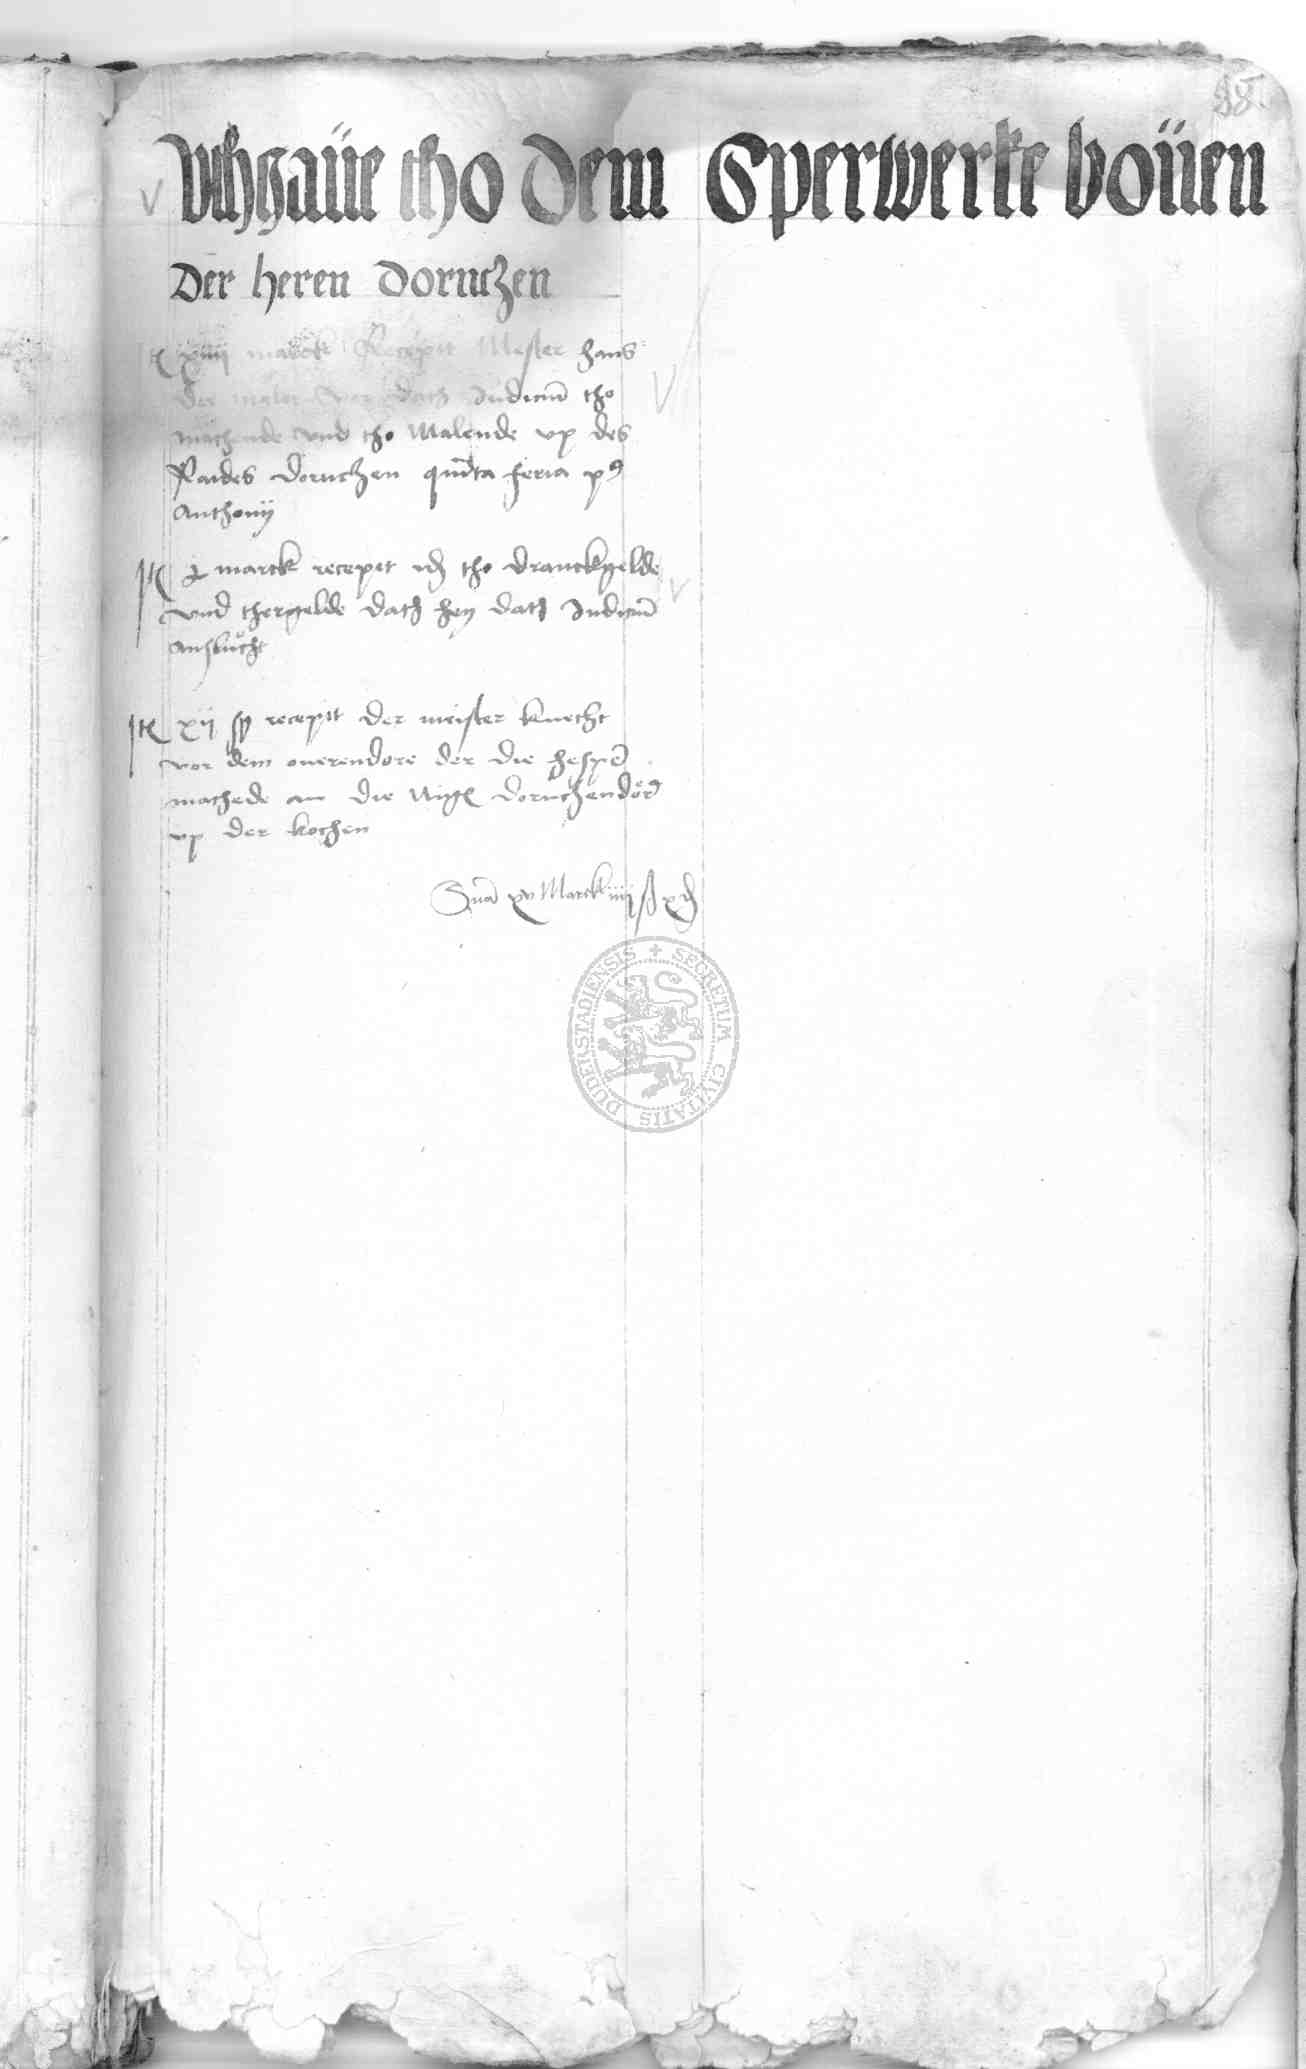 Uthgaüe tho dem Sperwerke boüen
Der heren dorntzen
xiiij marck Recepit Mester hans
der maler vor dath Judiciū tho
machende vnd tho Malende vp des
Raides dorntzen quīta feria pꝰ
Anthonij
marck recepit idē tho dranckgelde
vnd thergelde dath hey dath Judiciū
Anslucht
xij recepit der meister knecht
vor dem ouerendore der die hespē
machede an die dorntzendör
vp der kochen
Sūa xv Marck iiij ß
SECRETUM CIVITATIS DUDERSTADIENSIS